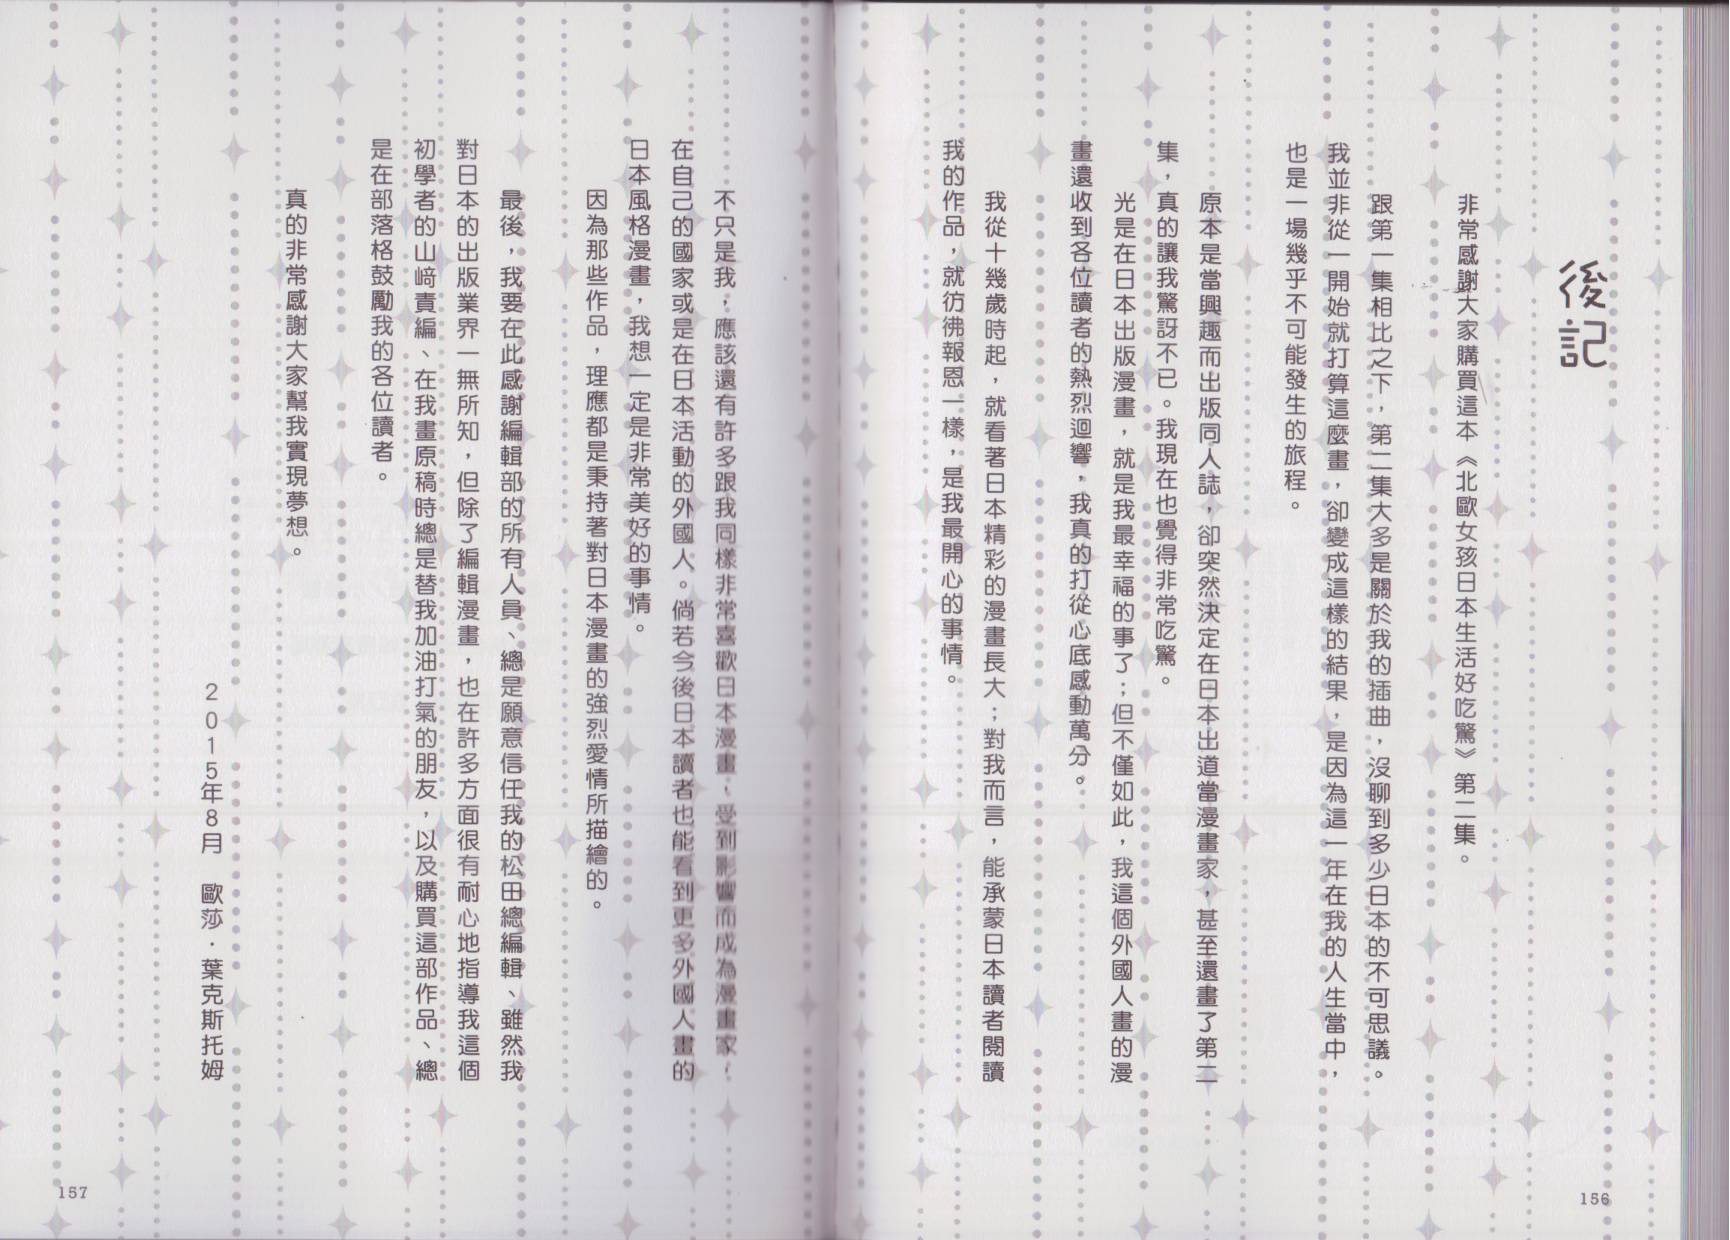 後記
非常感謝大家購買這本《北歐女孩日本生活好吃驚》第二集。
跟第一集相比之下，第二集大多是關於我的插曲，沒聊到多少日本的不可思議。
我並非從一開始就打算這麼畫，卻變成這樣的結果，是因為這一年在我的人生當中，
也是一場幾乎不可能發生的旅程。
原本是當興趣而出版同人誌，卻突然決定在日本出道當漫畫家，甚至還畫了第二
集，真的讓我驚訝不已。我現在也覺得非常吃驚。
光是在日本出版漫畫，就是我最幸福的事了；但不僅如此，我這個外國人畫的漫
畫還收到各位讀者的熱烈迴響，我真的打從心底感動萬分。
我從十幾歲時起，就看著日本精彩的漫畫長大；對我而言，能承蒙日本讀者閱讀
我的作品，就彷彿報恩一樣，是我最開心的事情。
156
不只是我，應該還有許多跟我同樣非常喜歡日本漫畫、受到影響而成為漫畫家，
在自己的國家或是在日本活動的外國人。倘若今後日本讀者也能看到更多外國人畫的
日本風格漫畫，我想一定是非常美好的事情。
因為那些作品，理應都是秉持著對日本漫畫的強烈愛情所描繪的。
最後，我要在此感謝編輯部的所有人員、總是願意信任我的松田總編輯、雖然我
對日本的出版業界一無所知，但除了編輯漫畫，也在許多方面很有耐心地指導我這個
初學者的山﨑責編、在我畫原稿時總是替我加油打氣的朋友，以及購買這部作品、總
是在部落格鼓勵我的各位讀者。
真的非常感謝大家幫我實現夢想。
2015年8月　歐莎·葉克斯托姆
157